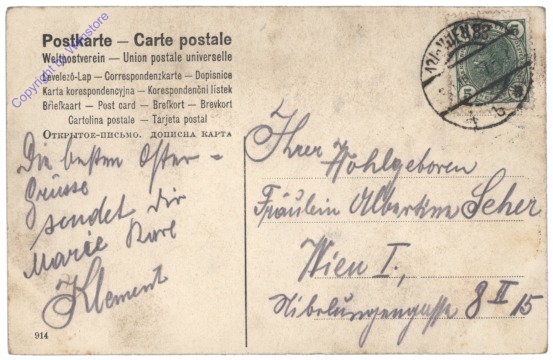 Postkarte — Carte postale
Weltpostverein — Union postale universelle
Levelező-Lap — Correspondenzkarte — Dopisnice
Karta korespondencyjna — Korespondenční listek
Briefkaart — Post card — Brefkort — Brevkort
Cartolina postale — Tarjeta postal
Открытое-письмо. Дописна карта
Copyright by
Die besten Oster-
Grüsse
sendet dir
Marie Karl
Klement
914
5 5
Ihrer Hohlgeboren
Fräulein Albertine Seher
Wien I.,
Nibelungengasse 8 II 15